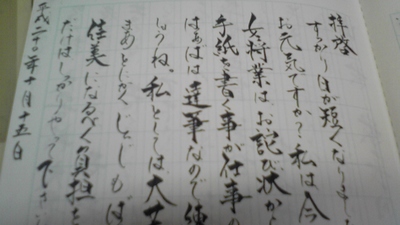 拝啓
すっかり日が短くなりまし
お元気ですか？私は今
女将業は、お詫び状から
手紙を書く事が仕事の
ばあばは達筆なので
しょうね。私としては大
まあとにかくじょじもば
佳美になるべく負担を
だけはしっかりやって下さい
平成二十年十月十五日